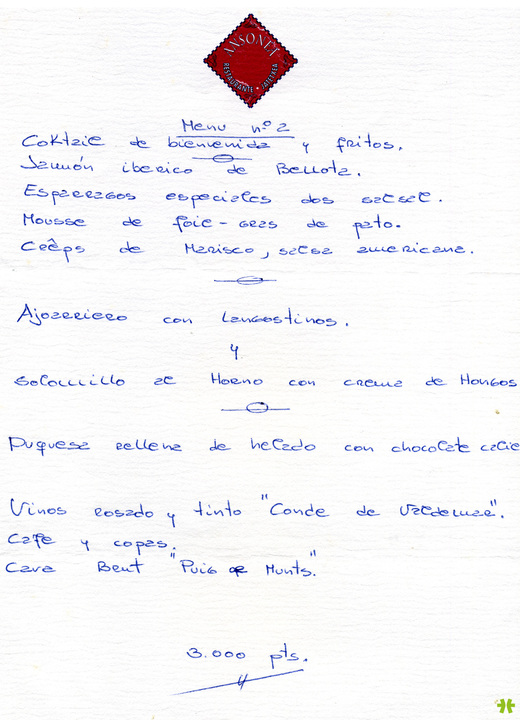 ANSONEA
RESTAURANTE · JATETXEA
Menu nº 2
Coktaie de bienvenida y fritos.
Jamón iberico de Bellota.
Esparragos especiales dos salsas.
Mousse de foie-gras de pato.
Crêps de Marisco, salsa americana.
Ajoarriero con Langostinos.
y
Solomillo al Horno con crema de Hongos
Duquesa rellena de helado con chocolate calie
Vinos rosado y tinto "Conde de Valdemar".
Cafe y copas.
Cava Brut "Puig Munts."
3.000 pts.